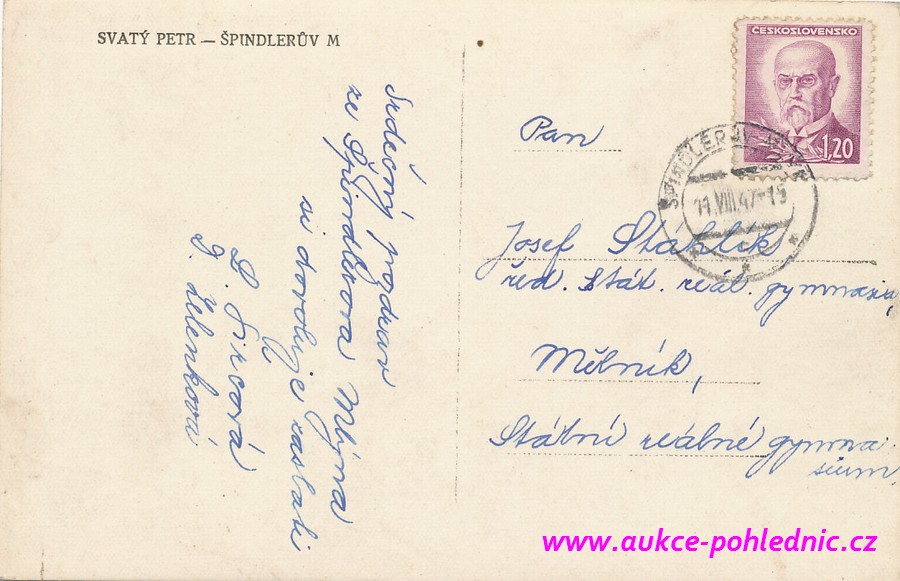 SVATÝ PETR — ŠPINDLERŮV M
Srdečný pozdrav
ze Špindlerova Mlýna
si dovoluje zaslati
D. Zelenková
ČESKOSLOVENSKO
1,20
ŠPINDLERŮV
11.VIII.47-15
Pan
Josef Stahlík
řed. Stát. reál. gymnasia,
Mělník,
Státní reálné gymna
sium,
www.aukce-pohlednic.cz